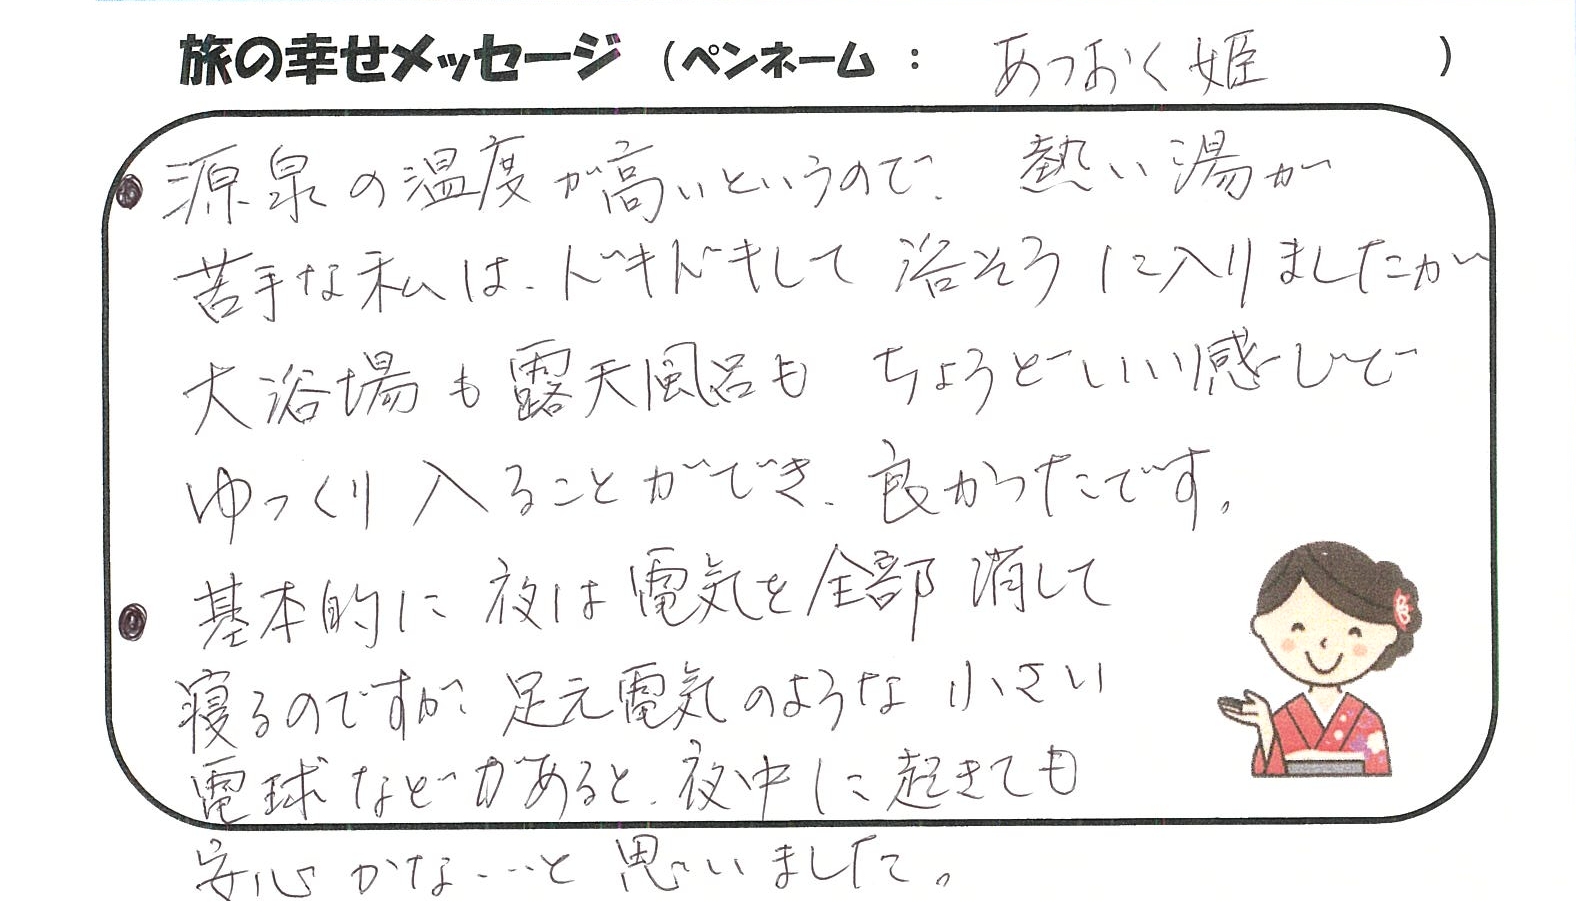 旅の幸せメッセージ (ペンネーム : あつおく姫 )
● 源泉の温度が高いというので、熱い湯が
苦手な私は、ドキドキして浴そうに入りましたが
大浴場も露天風呂もちょうどいい感じで
ゆっくり入ることができ、良かったです。
● 基本的に夜は電気を全部消して
寝るのですが、足元電気のような小さい
電球などがあると、夜中に起きても
安心かな…と思いました。